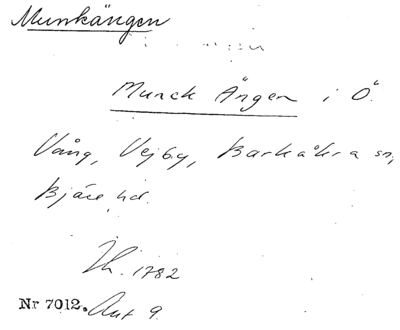 Munkängen
Munck Ängen i Ö.
Vång, Vejby, Barkåkra sn,
Bjäre hd.
Th. 1782
Nr 7012. Aut 9.